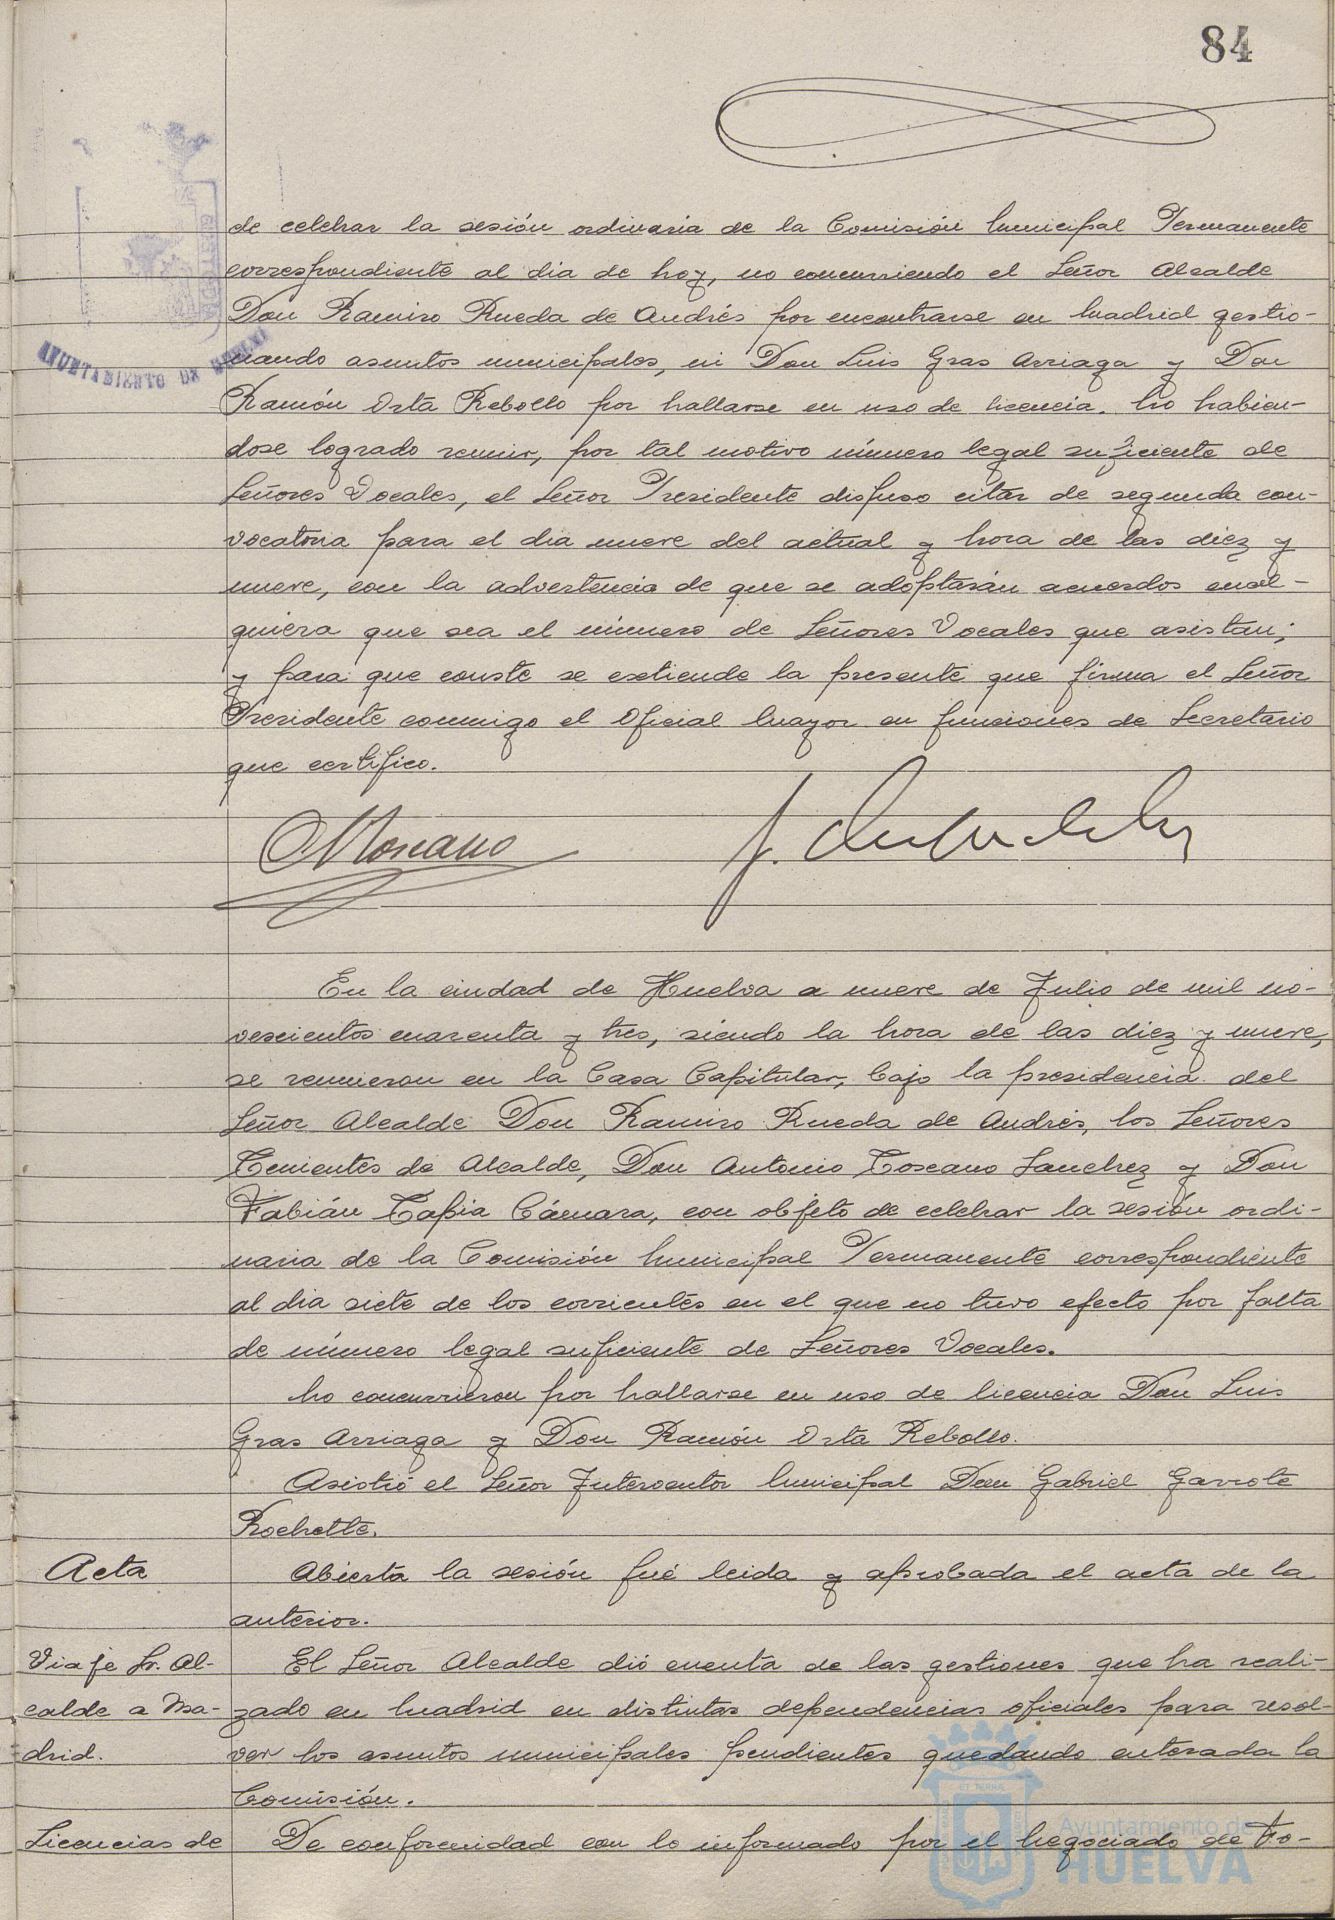 84
de celebrar la sesión ordinaria de la Comisión Municipal Permanente
correspondiente al dia de hoy, no concurriendo el Señor Alcalde
Don Ramiro Rueda de Andrés por encontrarse en Madrid gestio-
nando asuntos municipales, ni Don Luis Gras Arriaga y Don
AYUNTAMIENTO DE HUELVA
Ramón Orta Rebollo por hallarse en uso de licencia. No habien-
dose logrado reunir, por tal motivo número legal suficiente de
Señores Vocales, el Señor Presidente dispuso citar de segunda con-
vocatoria para el dia nueve del actual y hora de las diez y
nueve, con la advertencia de que se adoptarán acuerdos cual-
quiera que sea el número de Señores Vocales que asistan;
y para que conste se extiende la presente que firma el Señor
Presidente conmigo el Oficial Mayor en funciones de Secretario
que certifico.
En la ciudad de Huelva a nueve de Julio de mil no-
vescientos cuarenta y tres, siendo la hora de las diez y nueve,
se reunieron en la Casa Capitular, bajo la presidencia del
Señor Alcalde Don Ramiro Rueda de Andrés, los Señores
Tenientes de Alcalde, Don Antonio Toscano Sanchez y Don
Fabián Tapia Cámara, con objeto de celebrar la sesión ordi-
naria de la Comisión Municipal Permanente correspondiente
al dia siete de los corrientes en el que no tuvo efecto por falta
de número legal suficiente de Señores Vocales.
No concurrieron por hallarse en uso de licencia Don Luis
Gras Arriaga y Don Ramón Orta Rebollo.
Asistió el Señor Interventor Municipal Don Gabriel Garrote
Rochette.
Acta
Abierta la sesión fué leida y aprobada el acta de la
anterior.
Viaje Sr. Al-
calde a Ma-
drid.
El Señor Alcalde dió cuenta de las gestiones que ha reali-
zado en Madrid en distintas dependencias oficiales para resol-
ver los asuntos municipales pendientes quedando enterada la
Comisión.
Licencias de
De conformidad con lo informado por el Negociado de Fo-
Ayuntamiento de
HUELVA